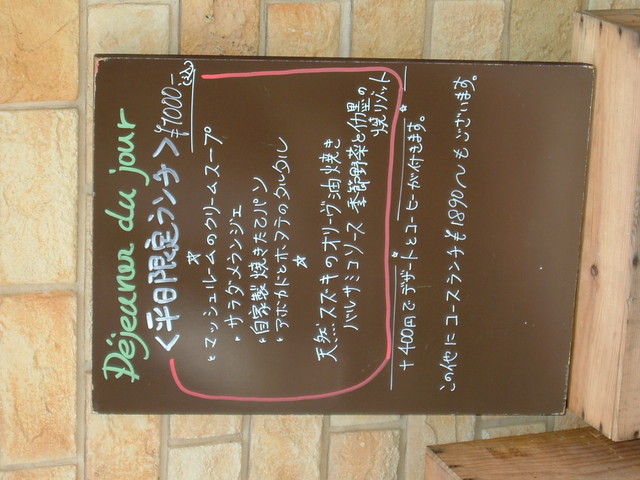 Déjeuner du jour
＜平日限定ランチ＞ ¥1000-(込)
・マッシュルームのクリームスープ
・サラダメランジェ
・自家製焼きたてパン
・アボカドとホタテのタルタル
天然スズキのオリーヴ油焼き
バルサミコソース 季節野菜と仔墨の
焼リゾット
+400円でデザートとコーヒーが付きます。
この他にコースランチ¥1890〜もございます。